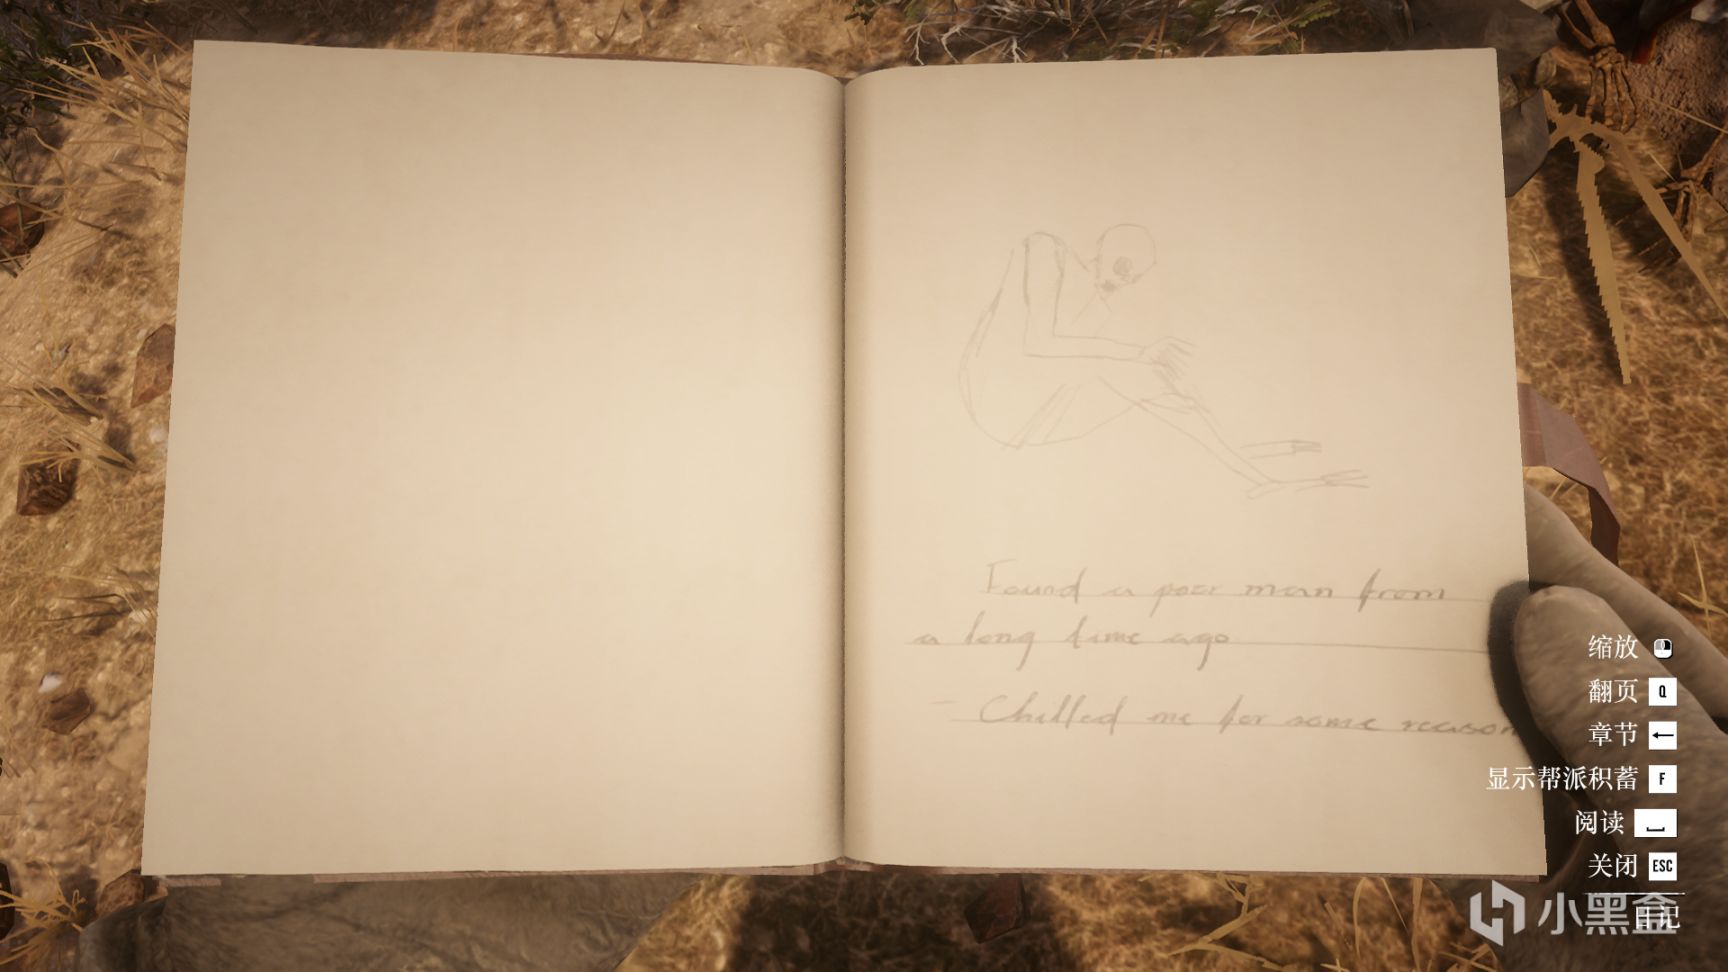 Found a poor man from
a long time ago
- Chilled me for some reason
缩放
翻页 Q
章节 ←
显示帮派积蓄 F
阅读
关闭 ESC
日记
小黑盒